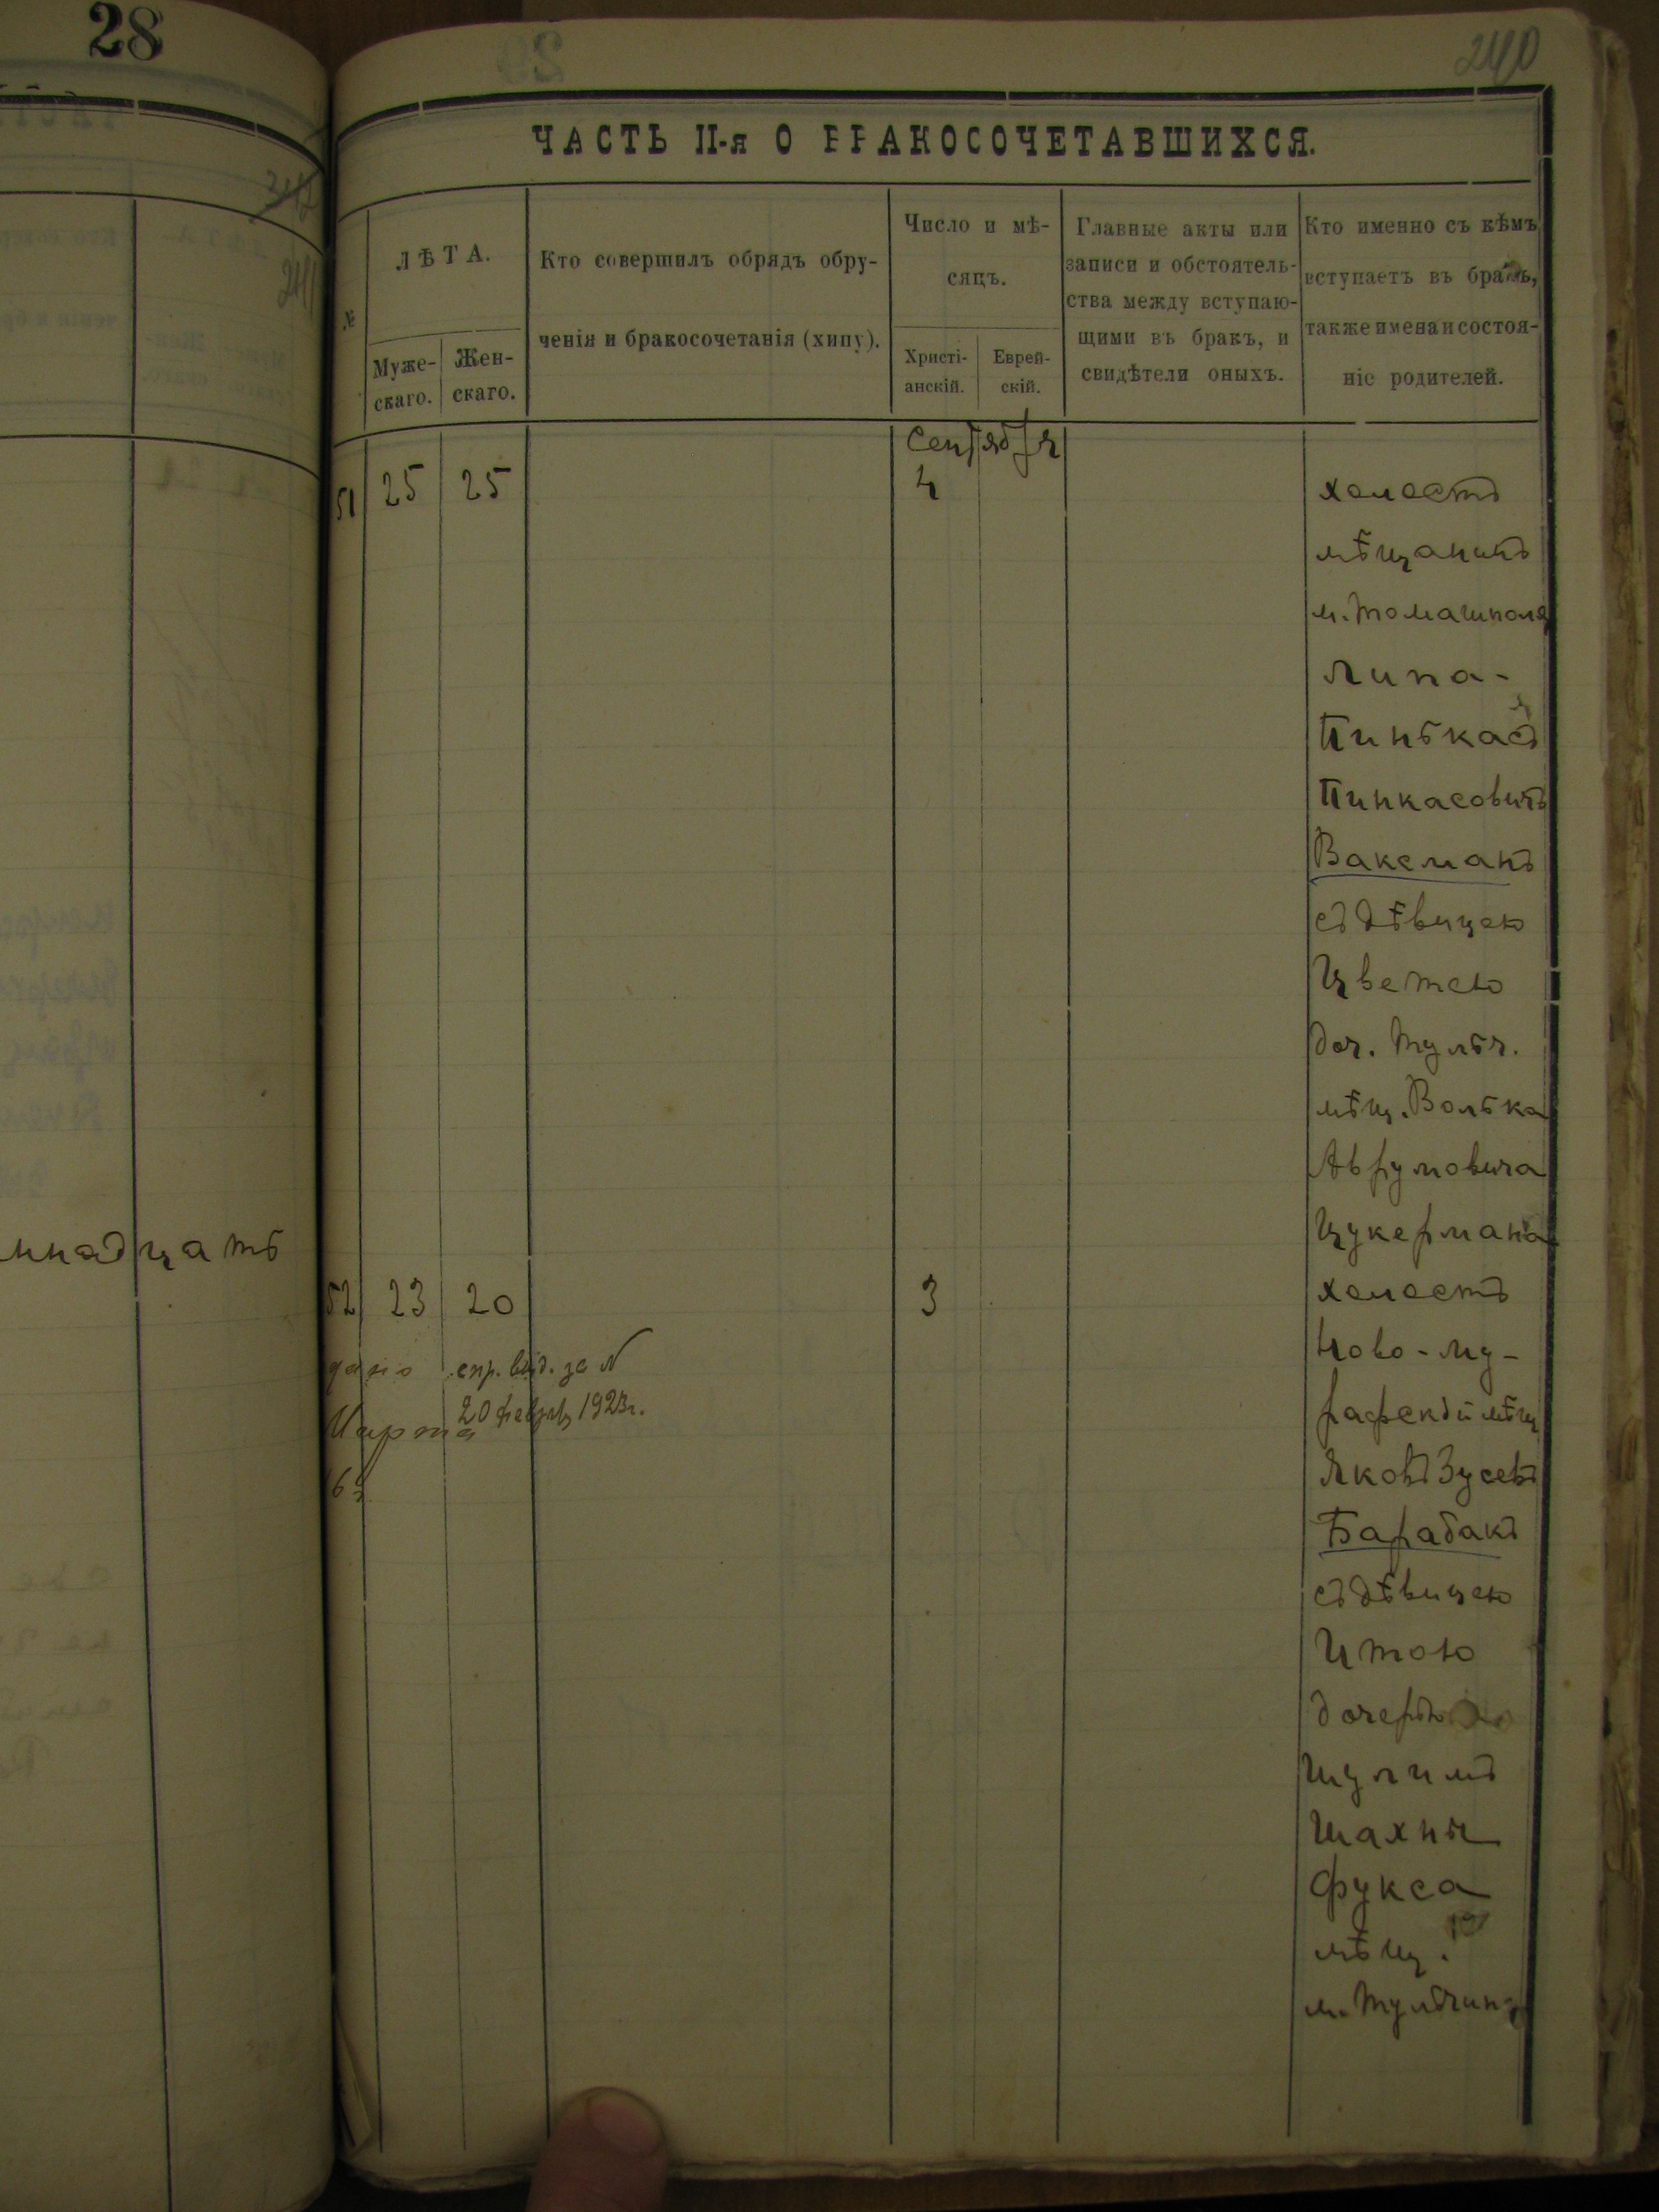 28
240
ЧАСТЬ II-я О БРАКОСОЧЕТАВШИХСЯ.
№
ЛѢТА.
Муже-
скаго.
Жен-
скаго.
Кто совершилъ обрядъ обру-
ченія и бракосочетанія (хипу).
Число и мѣ-
сяцъ.
Христі-
анскій.
Еврей-
скій.
Главные акты или
записи и обстоятель-
ства между вступаю-
щими въ бракъ, и
свидѣтели оныхъ.
Кто именно съ кѣмъ
вступаетъ въ бракъ,
также имена и состоя-
ніе родителей.
Сентября
51 25 25 4
холостъ
мѣщанинъ
м. Томашполя
Липа-
Пинькасъ
Пинкасовичъ
Ваксманъ
съ дѣвицею
Цветею
доч. Тульч.
мѣщ. Волька
Аврумовича
Цукермана
ннадцать
52 23 20 3
холостъ
Ново-му-
рафскій мѣщ
Яковъ Зусевъ
Барабакъ
съ дѣвицею
Итою
дочерью
Шулимъ
Шахны
Фукса
мѣщ.
м. Тульчина
спр. выд. за №
20 февр 1923г.
Марта